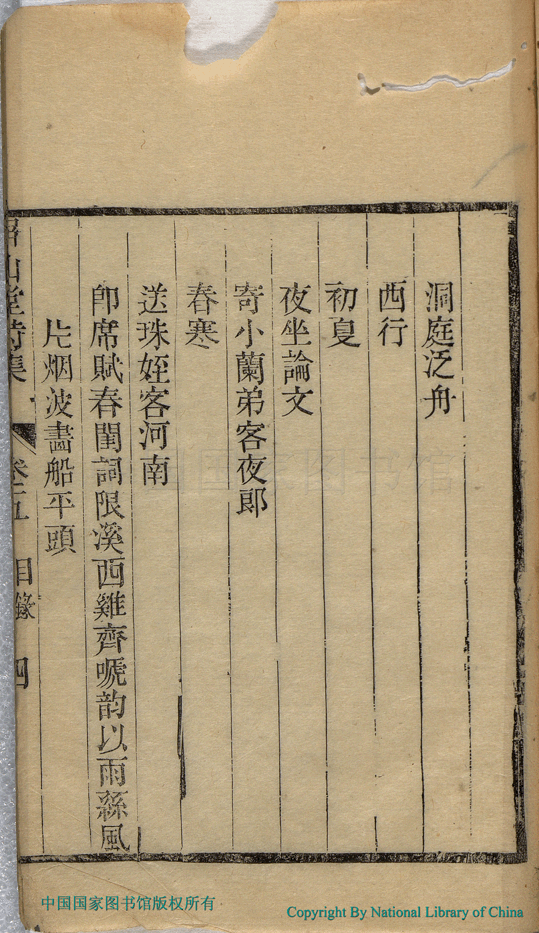 洞庭泛舟
西行
初夏
夜坐論文
寄小蘭弟客夜郎
春寒
送珠姪客河南
即席賦春閨詞限溪西雞齊嗁韵以雨絲風
片烟波畵船平頭
山堂詩集
卷五 目錄 四
中国国家图书馆版权所有
Copyright By National Library of China